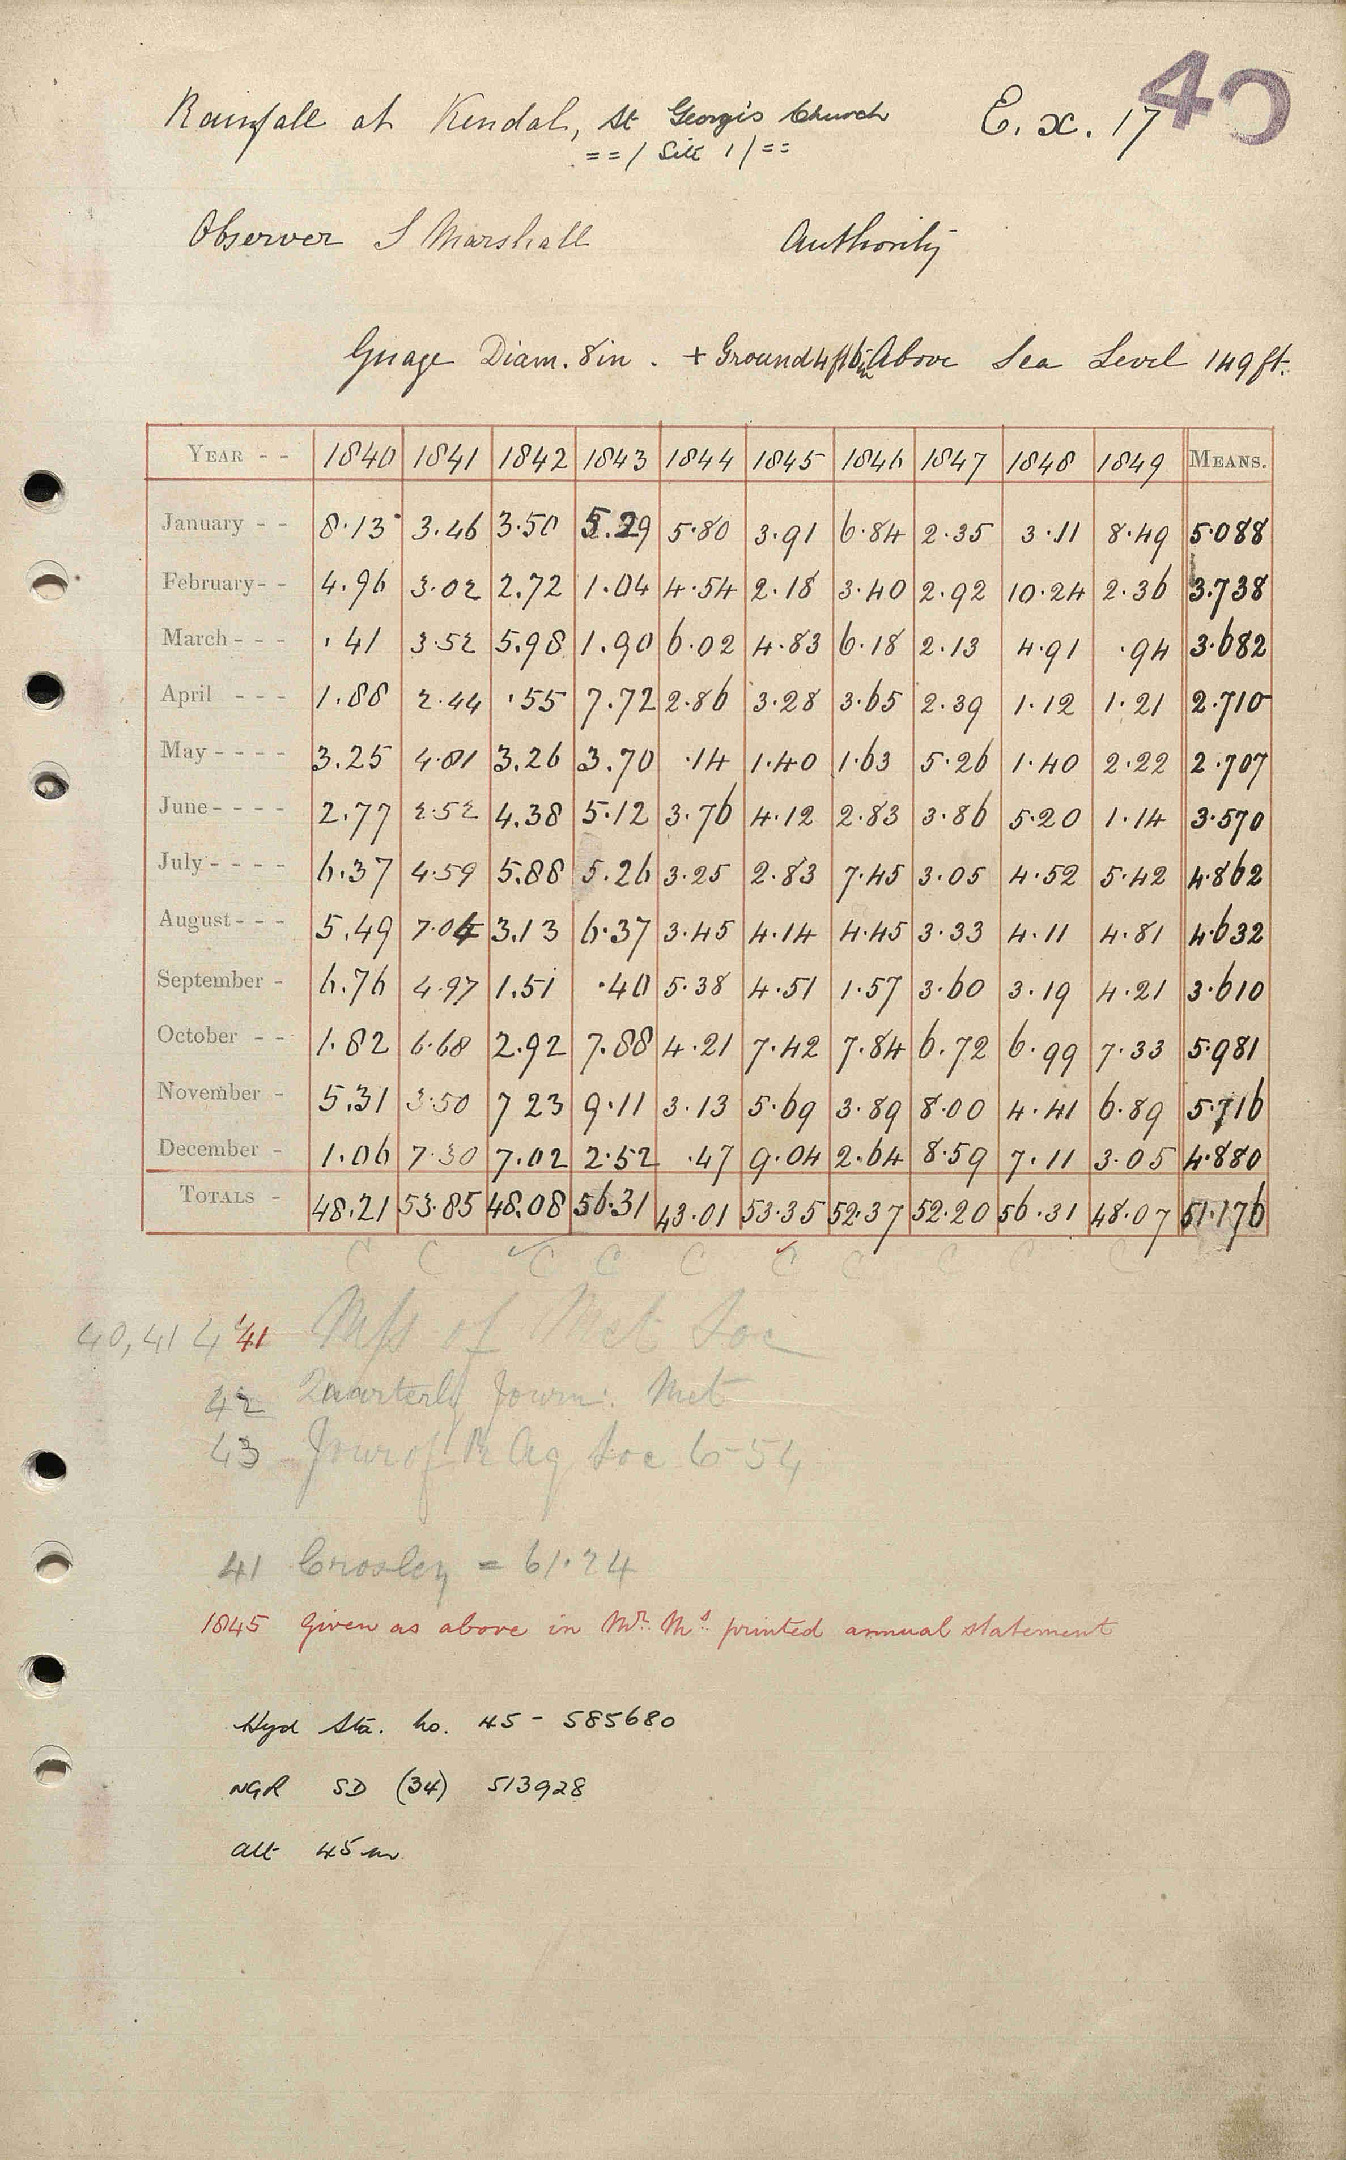 40
Rainfall at Kendal, St George's Church E. x. 17
==/ Site 1/==
Observer S Marshall Authority
Guage Diam. 8in. + Ground 4ft 6in Above Sea Level 149 ft.
YEAR - - 1840 1841 1842 1843 1844 1845 1846 1847 1848 1849 MEANS.
January - - 8.13 3.46 3.50 5.29 5.80 3.91 6.84 2.35 3.11 8.49 5.088
February - - 4.96 3.02 2.72 1.04 4.54 2.18 3.40 2.92 10.24 2.36 3.738
March - - - .41 3.52 5.98 1.90 6.02 4.83 6.18 2.13 4.91 .94 3.682
April - - - 1.88 2.44 .55 7.72 2.86 3.28 3.65 2.39 1.12 1.21 2.710
May - - - - 3.25 4.81 3.26 3.70 .14 1.40 1.63 5.26 1.40 2.22 2.707
June - - - - 2.77 2.52 4.38 5.12 3.76 4.12 2.83 3.86 5.20 1.14 3.570
July - - - - 6.37 4.59 5.88 5.26 3.25 2.83 7.45 3.05 4.52 5.42 4.862
August - - - 5.49 7.04 3.13 6.37 3.45 4.14 4.45 3.33 4.11 4.81 4.632
September - 6.76 4.97 1.51 .40 5.38 4.51 1.57 3.60 3.19 4.21 3.610
October - - 1.82 6.68 2.92 7.88 4.21 7.42 7.84 6.72 6.99 7.33 5.981
November - 5.31 3.50 7 23 9.11 3.13 5.69 3.89 8.00 4.41 6.89 5.716
December - 1.06 7.30 7.02 2.52 .47 9.04 2.64 8.59 7.11 3.05 4.880
TOTALS - 48.21 53.85 48.08 56.31 43.01 53.35 52.37 52.20 56.31 48.07 51.176
C C C C C C C C C C
40, 41 4 '41 Mss of Met Soc
42 Quarterly Journ: Met
43 Jour of R Ag Soc 6-54
41 Crosley = 61.24
1845 Given as above in Mr. Ms. printed annual statement
Hyd Sta. No. 45 - 585680
NGR SD (34) 513928
alt 45 m